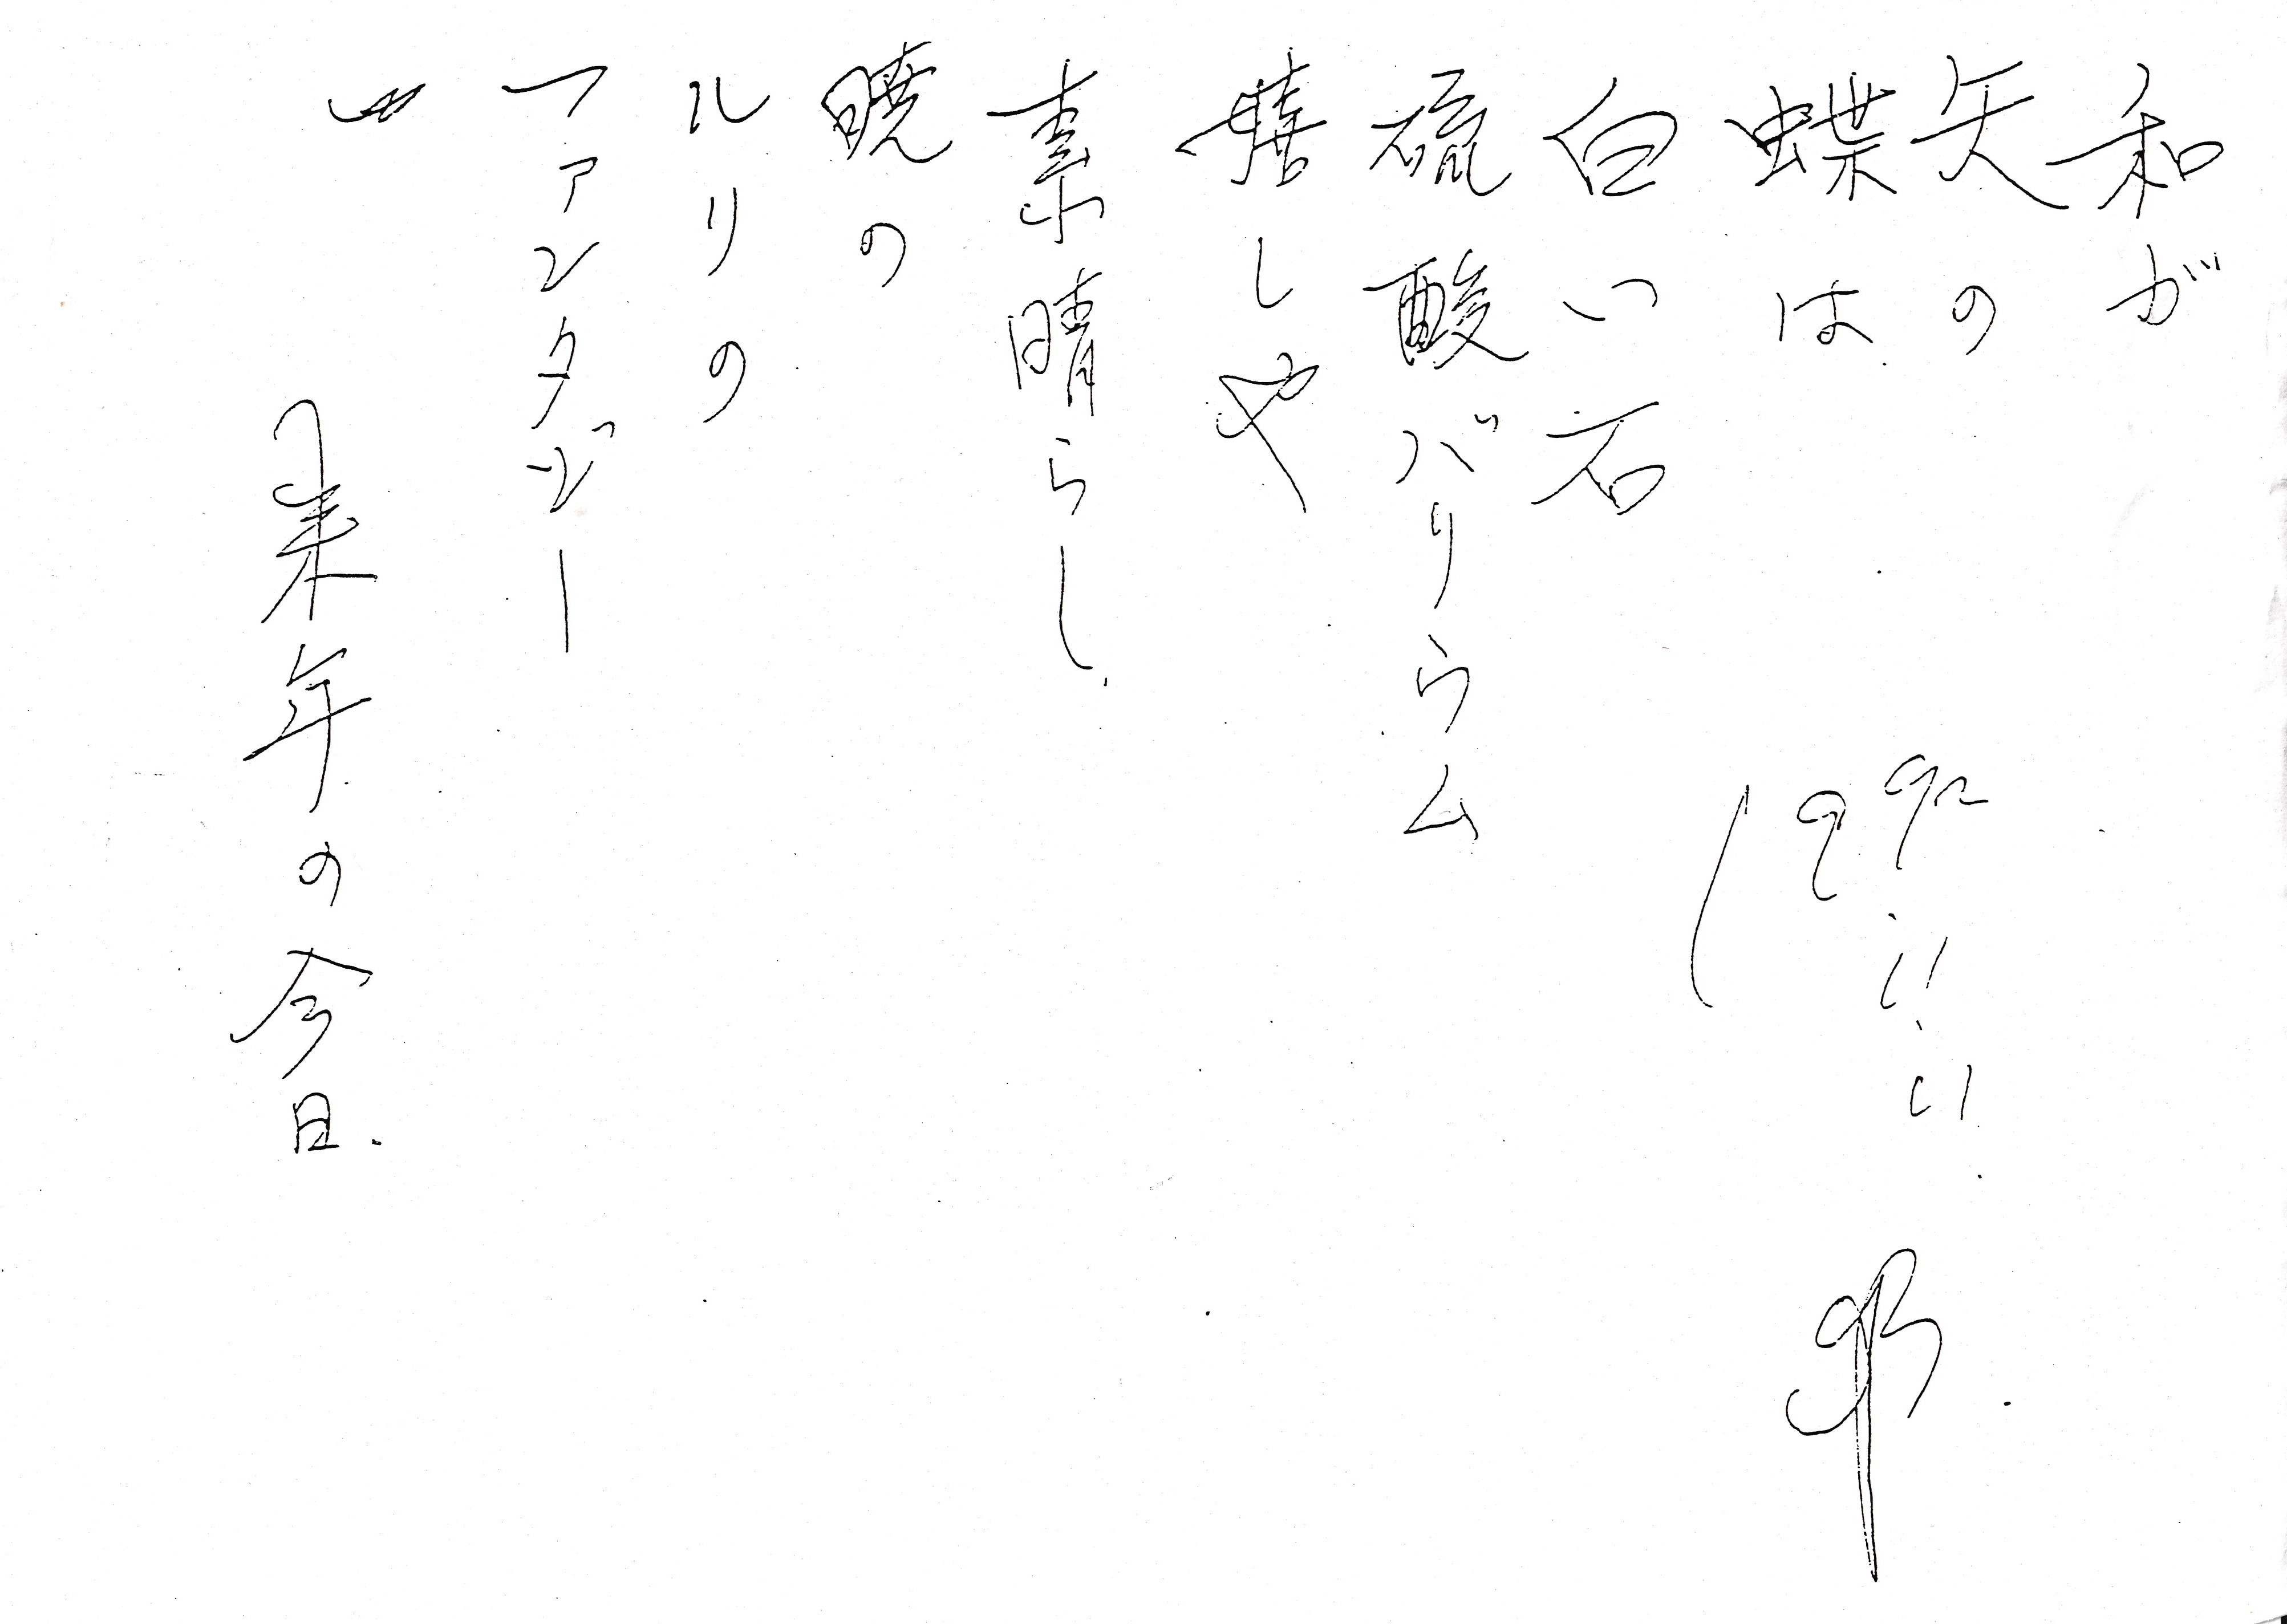 和が
矢の
蝶は
白い石
硫酸バリウム
嬉しや
素晴らし
暁の
ルリの
ファンタジー
来年の今日.
1992.11.11.